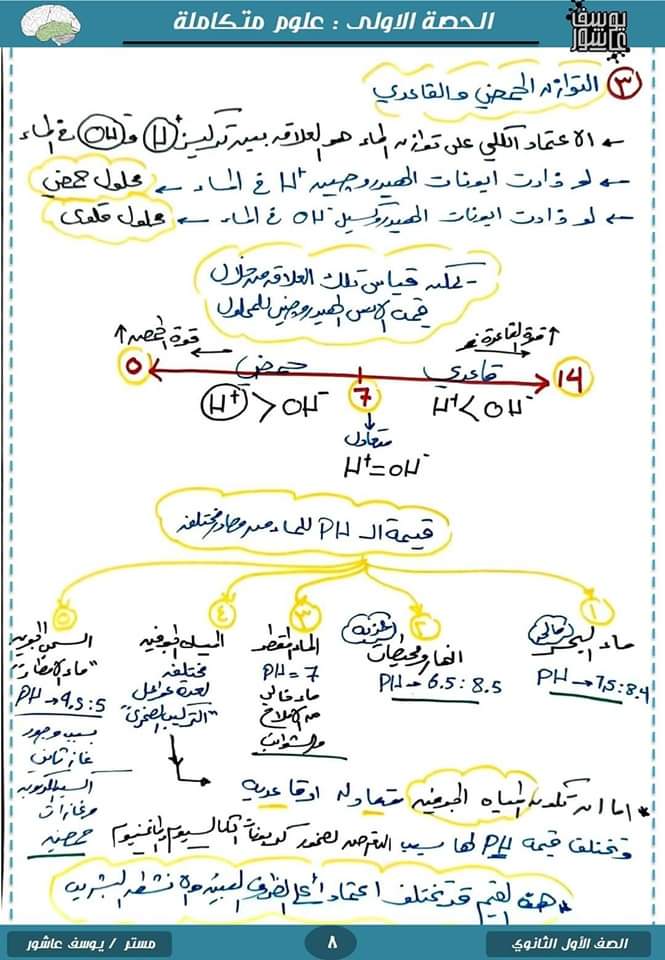 الحصة الاولى : علوم متكاملة
يوسف عاشور
٣ التوازن الحمضي والقاعدي
← الاعتماد الكلي على توازن الماء هو العلاقه بين تركيز H⁺ و OH⁻ في الماء
← لو زادت ايونات الهيدروجين H⁺ في الماء ← محلول حمضي
← لو زادت ايونات الهيدروكسيل OH⁻ في الماء ← محلول قلوى
- يمكن قياس تلك العلاقه من خلال
قيمه الاس الهيدروجيني للمحلول
قوة الحمض ↑
قوة القاعدة ↑
0 حمضي 7 قاعدي 14
H⁺ > OH⁻
H⁺ < OH⁻
متعادل
H⁺ = OH⁻
قيمة الـ PH للماء من مصادر مختلفه
١
ماء البحر
PH → 7,5 : 8.4
٢
العذبه
الانهار والمحيطات
PH → 6.5 : 8.5
٣
الماء المقطر
PH = 7
ماء خالي
من الاملاح
والشوائب
٤
المياه الجوفيه
مختلفه
لعدة عوامل
"التركيب الصخري"
٥
"ماء الامطار"
PH → 4,5 : 5
بسبب وجود
غاز ثاني
اكسيد الكربون
وغازات
حمضيه
* اما ان تكون المياه الجوفيه متعادله او قاعديه
وتختلف قيمة PH لها بسبب التعرض لصخور كربونات الكالسيوم والماغنسيوم
* هذه القيم قد تختلف اعتماداً على الظروف البيئيه والانشطه البشريه
الصف الأول الثانوي
٨
مستر / يوسف عاشور